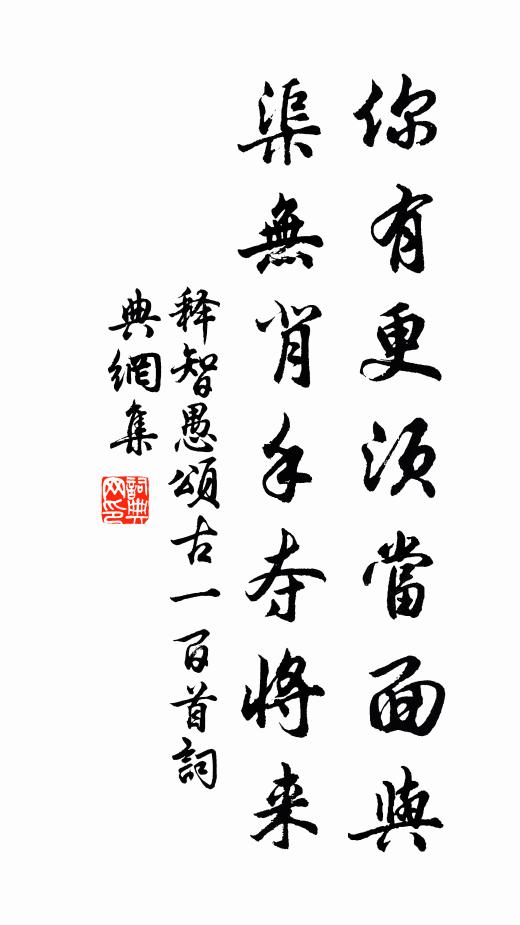 你有更須當面與
渠無背手夺將来
释智愚頌古一百首詞
典網集
詞典网印